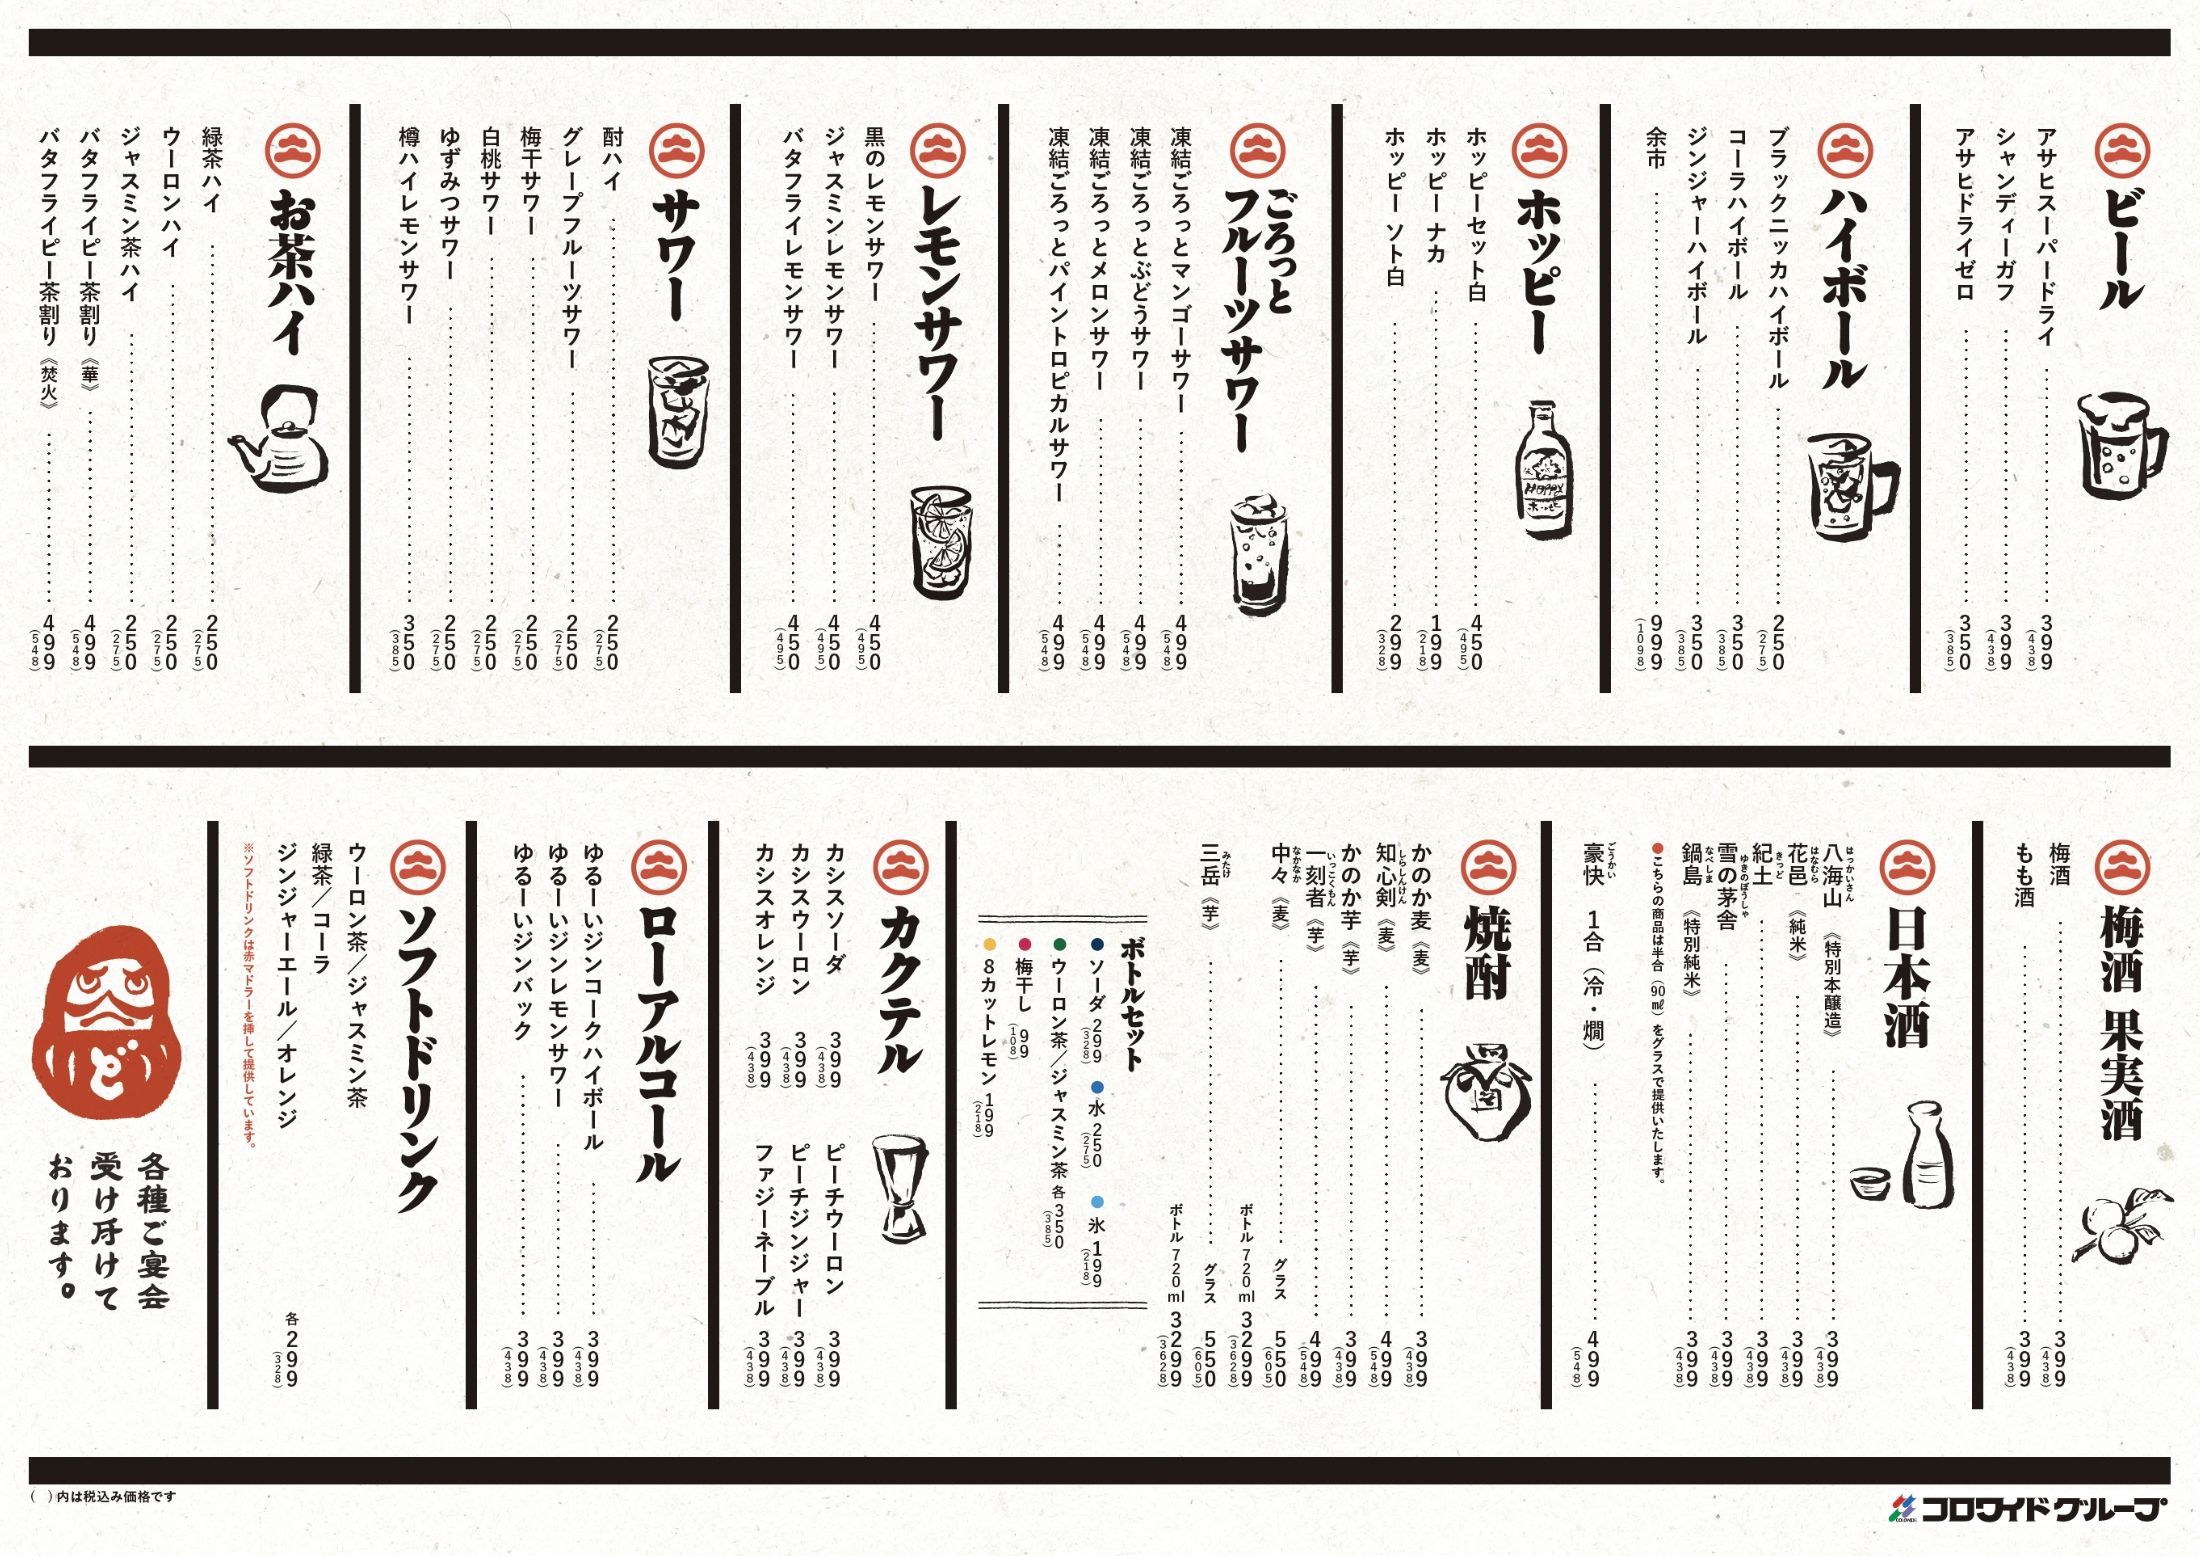 ビール
アサヒスーパードライ 399 (438)
シャンディーガフ 399 (438)
アサヒドライゼロ 350 (385)
ハイボール
ブラックニッカハイボール 250 (275)
コーラハイボール 350 (385)
ジンジャーハイボール 350 (385)
余市 999 (1098)
ホッピー
HOPPY
ホッピー
ホッピーセット白 450 (495)
ホッピー ナカ 199 (218)
ホッピー ソト白 299 (328)
ごろっと
フルーツサワー
凍結ごろっとマンゴーサワー 499 (548)
凍結ごろっとぶどうサワー 499 (548)
凍結ごろっとメロンサワー 499 (548)
凍結ごろっとパイントロピカルサワー 499 (548)
レモンサワー
黒のレモンサワー 450 (495)
ジャスミンレモンサワー 450 (495)
バタフライレモンサワー 450 (495)
サワー
酎ハイ 250 (275)
グレープフルーツサワー 250 (275)
梅干サワー 250 (275)
白桃サワー 250 (275)
ゆずみつサワー 250 (275)
樽ハイレモンサワー 350 (385)
お茶ハイ
緑茶ハイ 250 (275)
ウーロンハイ 250 (275)
ジャスミン茶ハイ 250 (275)
バタフライピー茶割り《華》 499 (548)
バタフライピー茶割り《焚火》 499 (548)
梅酒 果実酒
梅酒 399 (438)
もも酒 399 (438)
日本酒
八海山 はっかいさん《特別本醸造》 399 (438)
花邑 はなむら《純米》 399 (438)
紀土 きっど 399 (438)
雪の茅舎 ゆきのぼうしゃ 399 (438)
鍋島 なべしま《特別純米》 399 (438)
●こちらの商品は半合(90㎖)をグラスで提供いたします。
豪快 ごうかい 1合(冷・燗) 499 (548)
焼酎
かのか麦《麦》 399 (438)
知心剣 しらしんけん《麦》 499 (548)
かのか芋《芋》 399 (438)
一刻者 いっこくもん《芋》 499 (548)
中々 なかなか《麦》 グラス 550 (605)
ボトル 720ml 3299 (3628)
三岳 みたけ《芋》 グラス 550 (605)
ボトル 720ml 3299 (3628)
ボトルセット
●ソーダ 299 (328) ●水 250 (275) ●氷 199 (218)
●ウーロン茶/ジャスミン茶 各350 (385)
●梅干し 99 (108)
●8カットレモン 199 (218)
カクテル
カシスソーダ 399 (438) ピーチウーロン 399 (438)
カシスウーロン 399 (438) ピーチジンジャー 399 (438)
カシスオレンジ 399 (438) ファジーネーブル 399 (438)
ローアルコール
ゆるーいジンコークハイボール 399 (438)
ゆるーいジンレモンサワー 399 (438)
ゆるーいジンバック 399 (438)
ソフトドリンク
ウーロン茶/ジャスミン茶
緑茶/コーラ
ジンジャーエール/オレンジ 各299 (328)
※ソフトドリンクは赤マドラーを挿して提供しています。
ど
各種ご宴会
受け付けて
おります。
( )内は税込み価格です
コロワイドグループ